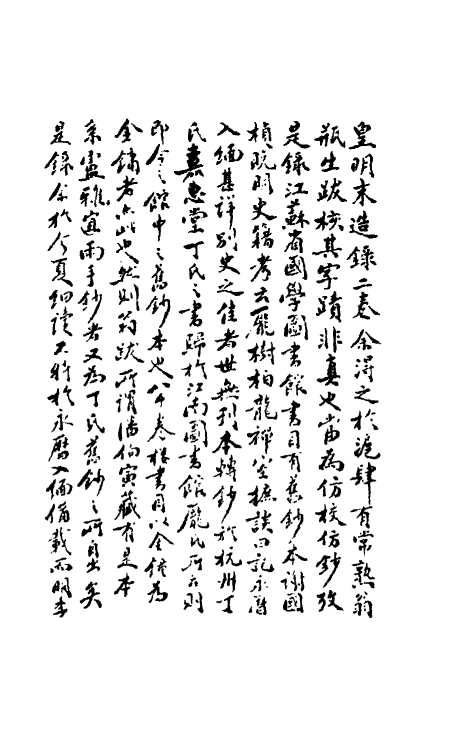 皇明末造錄二卷余得之於滬肆有常熟翁
瓶生跋核其字蹟非真也當為仿校仿鈔攷
是錄江蘇省國學圖書館書目有舊鈔本謝國
楨晚明史籍考云龐樹柏龍禪室摭談曰記永曆
入緬甚詳別史之佳者世無刊本轉鈔於杭州丁
氏嘉惠堂丁氏之書歸於江南圖書館龐氏所云則
即今之館中之舊鈔本也八千卷樓書目以金鐘為
金鏞者亦此也然則翁跋所謂潘伯寅藏有是本
系盧雅宜兩手鈔者又為丁氏舊鈔之所自出矣
是錄余於今夏細讀不特於永曆入緬備載而明季